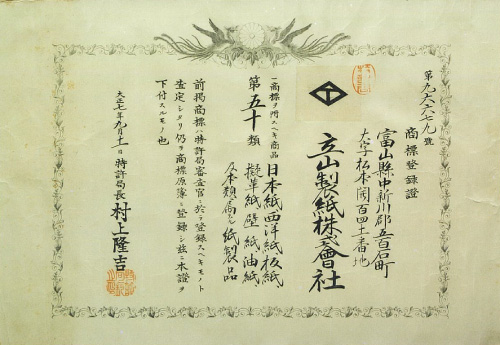 第九六六七九號
商標登録證
富山縣中新川郡五百石町
大字松本開百四十一番地
立山製紙株式會社
一商標ヲ用スヘキ商品
第五十類
日本紙西洋紙板紙
擬革紙壁紙油紙
及本類ニ屬スル紙製品
前掲商標ハ特許局審査官ニ於テ登録スヘキモノト
査定シタリ仍テ商標原簿ニ登録シ茲ニ本證ヲ
下付スルモノ也
大正七年九月十一日
特許局長 村上隆吉